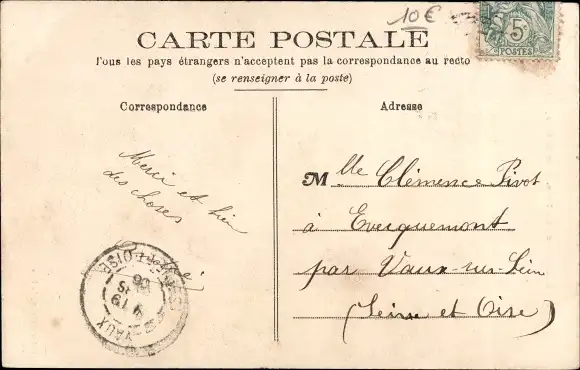 10 €
CARTE POSTALE
Tous les pays étrangers n'acceptent pas la correspondance au recto
(se renseigner à la poste)
5
POSTES
Correspondance
Adresse
Merci et bien
des choses
Mlle Clémence Pivot
à Evecquemont
par Vaux-sur-Sein
(Seine et Oise)
VAUX
OISE
19